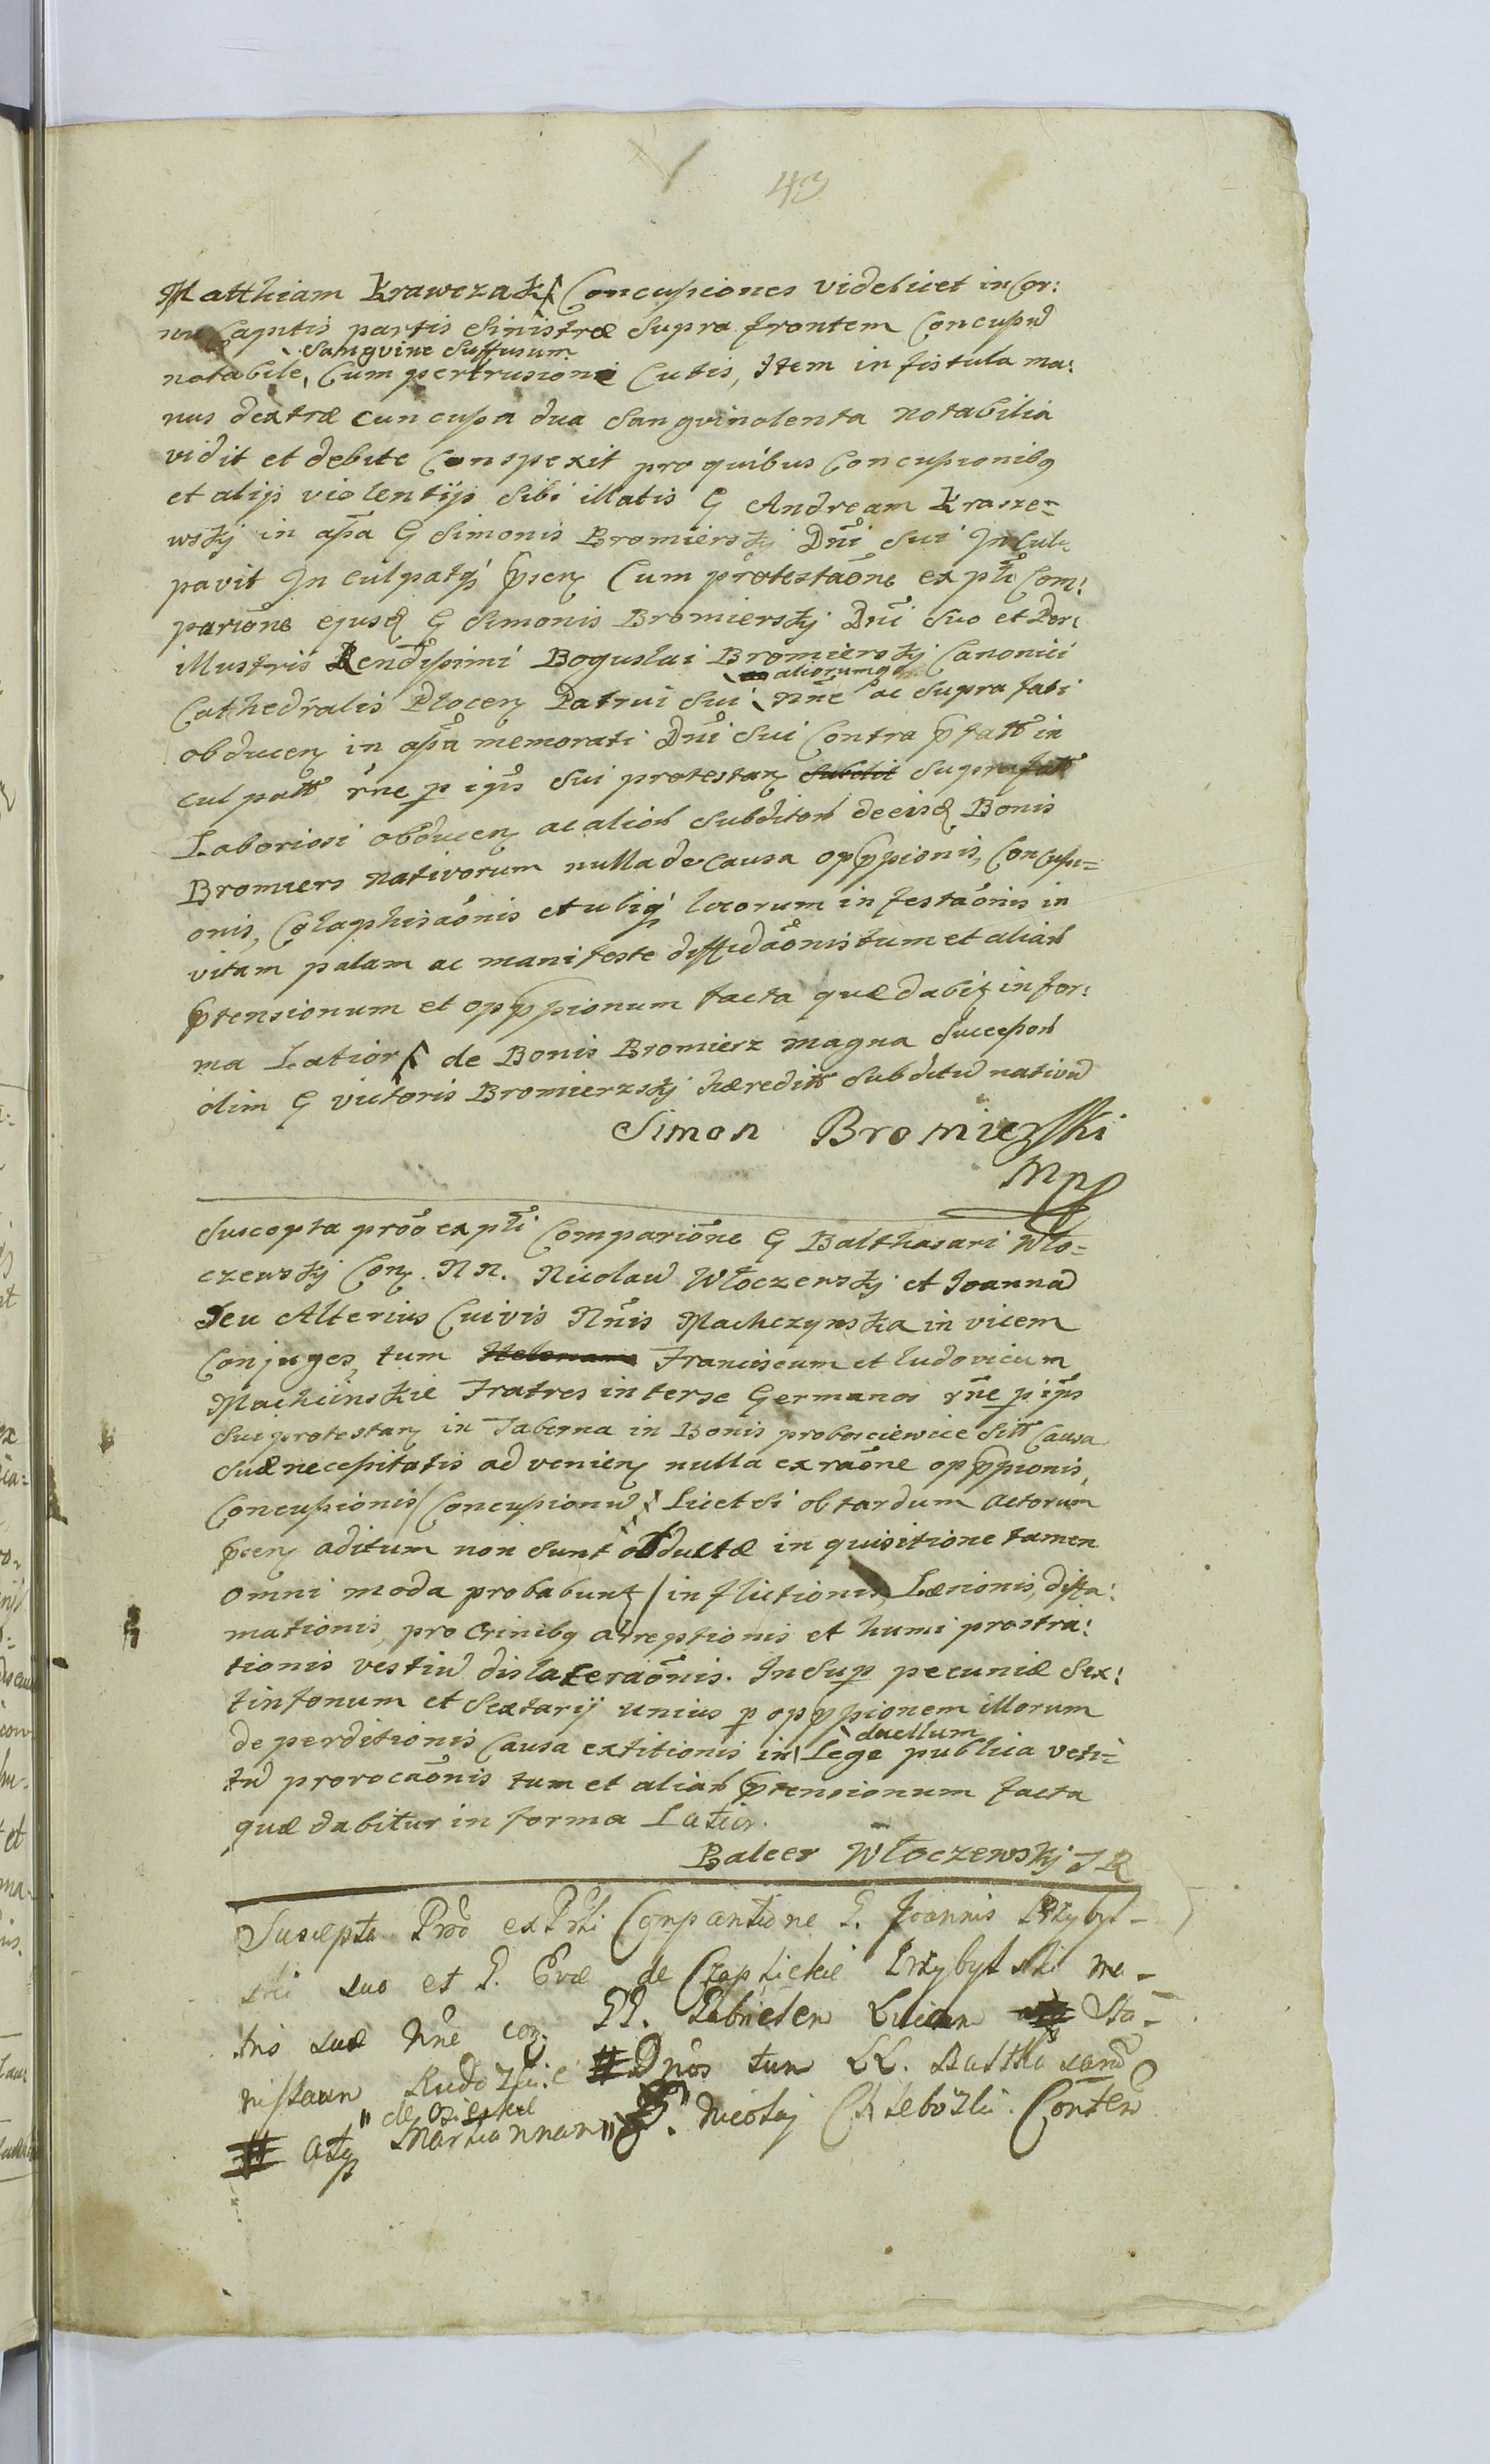 43
Matthiam Krawczak ⟨Concussiones videlicet in Cor:
nu Capitis partis Sinistræ Supra frontem Concussu
Sangvine Suffusum
notabile, Cum pertrusione Cutis, Item in fistula ma:
nus dextræ cuncussa dua Sangvinolenta notabilia
vidit et debite Conspexit pro quibus Concussionibq
et alijs violentijs Sibi illatis G Andream Krasze=
wskj in assa G Simonis Bromierskj Dni Sui Incul=
pavit Inculpatq̃ pscn Cum protestaōne ex pti Com:
pariōne ejusd G Simonis Bromierskj Dni Suo et Per
illustris Rendissimi Boguslai Bromierskj Canonici
aliorumq
Cathedralis Plocen Patrui Sui nñe ac Supra fati
obducen in assa memorati Dni Sui Contra pfatt in
culpatt rñe p ips Sui protestan Subdit Suprafatt
Laboriosi obducen ac alior Subditor de eisd Bonis
Bromiers nativorum nulla de causa oppssionis, Concussi=
onis, Colaphisaōnis et ubiq̃ locorum infestaōnis in
vitam palam ac manifeste diffidaōnis tum et aliar
ptensionum et oppssionum facta quæ dabit in for:
ma Latior⟨ de Bonis Bromierz magna Successor
olim G victoris Bromierzskj hæreditt Subditu nativu
Simon Bromierski
Mp
Suscepta proō ex pti Compariōne G Balthasari Wło=
czewskj Con. NN. Nicolau Włoczewskj et Joanna
Seu Alterius Cuivis Nnis Machczynska in vicem
Conjuges, tum Helenam Franciscum et ludovicum
Machcinskie Fratres inter se Germanos rñe p ips
Sui protestan in Taberna in Bonis probosciewice Sitt Causa
Suæ necessitatis advenien nulla ex raōne oppssionis,
Concussionis/Concussionu licet Si ob tardum actorum
pcen aditum non Sunt obductæ inquisitione tamen
omni moda probabunt/ inflictionis, Læsionis, diffa:
mationis, pro Crinibq arreptionis et humi prostra:
tionis vestiu dislaceraōnis. In Sup pecuniæ Sex:
tinfonum et Sextarij unius p oppssionem illorum
duellum
deperditionis Causa extitionis in Lege publica veti=
tu provocaōnis tum et aliar ptensionum facta
quæ dabitur in forma Latior.
Balcer Włoczewskj JR
Suscepta Proō ex Prti Compantione G. Joannis Przybyl-
ski suo et G. Evæ de Czaplickie Przybylski ma-
tris suæ Nñe con. GG. Gabrielem Lucian Sta-
nislaum Rudozkie # Dnos tum LL. Balth
de Osieskie
# atq Mariannam G. Nicolaj Chlebozki. Conten